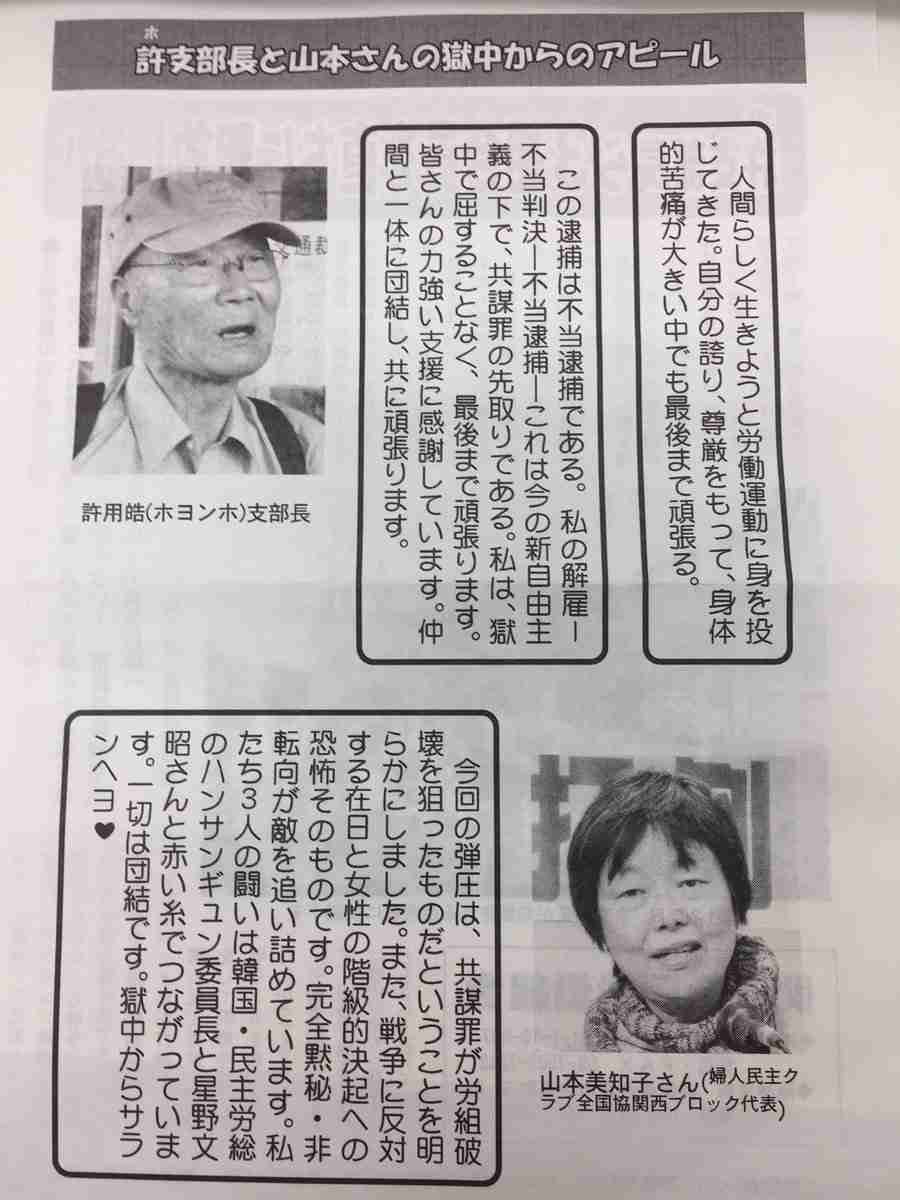 ホ
許支部長と山本さんの獄中からのアピール
人間らしく生きようと労働運動に身を投
じてきた。自分の誇り、尊厳をもって、身体
的苦痛が大きい中でも最後まで頑張る。
この逮捕は不当逮捕である。私の解雇ー
不当判決ー不当逮捕ーこれは今の新自由主
義の下で、共謀罪の先取りである。私は、獄
中で屈することなく、最後まで頑張ります。
皆さんの力強い支援に感謝しています。仲
間と一体に団結し、共に頑張ります。
許用皓(ホヨンホ)支部長
今回の弾圧は、共謀罪が労組破
壊を狙ったものだということを明
らかにしました。また、戦争に反対
する在日と女性の階級的決起への
恐怖そのものです。完全黙秘・非
転向が敵を追い詰めています。私
たち3人の闘いは韓国・民主労総
のハンサンギュン委員長と星野文
昭さんと赤い糸でつながっていま
す。一切は団結です。獄中からサラ
ンヘヨ♥
山本美知子さん(婦人民主ク
ラブ全国協関西ブロック代表)